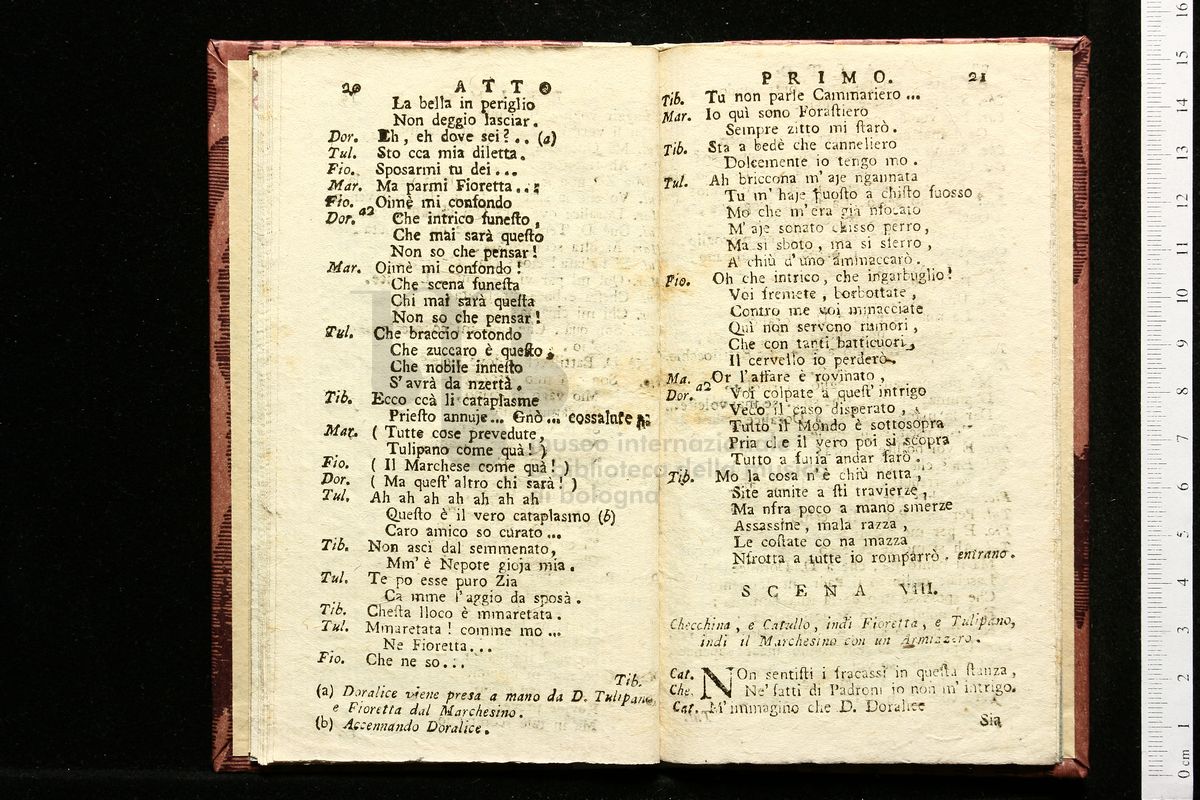 20 ATTO
La bella in periglio
Non deggio lasciar.
Dor. Eh, eh dove sei? .. (a)
Tul. Sto cca mia diletta.
Fio. Sposarmi tu dei ...
Mar. Ma parmi Fioretta ..;
Fio. Oimè mi confondo
Dor. a2 Che intrico funesto,
Che mai sarà questo
Non so che pensar!
Mar. Oimè mi confondo!
Che scena funesta
Chi mai sarà questa
Non so che pensar!
Tul. Che braccio rotondo
Che zuccaro è questo,
Che nobile innesto
S'avrà da nzertà.
Tib. Ecco ccà li cataplasme
Priesto annuje... Gnò ... cossalute
Mar. ( Tutte cose prevedute,
Tulipano come quà! )
Fio. ( Il Marchese come quà! )
Dor. ( Ma quest'altro chi sarà! )
Tul. Ah ah ah ah ah ah ah
Questo è il vero cataplasmo (b)
Caro amico so curato ...
Tib. Non asci dal semmenato,
Mm'è Nepote gioja mia.
Tul. Te po esse puro Zia
Ca mme l'aggio da sposà.
Tib. Chesta lloco è mmaretata.
Tul. Mmaretata! comme mo ...
Ne Fioretta...
Fio. Che ne so...
Tib.
(a) Doralice viene presa a mano da D. Tulipano
e Fioretta dal Marchesino.
(b) Accennando Doralice.
PRIMO. 21
Tib. Tu non parle Cammariero ...
Mar. Io quì sono Forastiero
Sempre zitto mi starò.
Tib. Sta a bedè che canneliero
Dolcemente io tengo mo.
Tul. Ah briccona m'aje ngannata
Tu m'haje puosto a chisto fuosso
Mo che m'era già nfocato
M'aje sonato chisso perro,
Ma si sboto, ma si sferro,
A chiù d'uno ammaccarò.
Fio. Oh che intrico, che ingarbuglio!
Voi fremete, borbottate,
Contro me voi minacciate
Quì non servono rumori,
Che con tanti batticuori,
Il cervello io perderò.
Ma. Or l'affare è rovinato,
Dor. a2 Voi colpate a quest'intrigo
Veco il caso disperato,
Tutto il Mondo è sottosopra
Pria che il vero poi si scopra
Tutto a furia andar farò.
Tib. Mo la cosa n'è chiù netta,
Site aunite a sti travierze,
Ma nfra poco a mano smerze
Assassine, mala razza,
Le costate co na mazza
Nfrotta a tutte io romparrò. entrano.
SCENA VIII.
Checchina, e Catullo, indi Fioretta, e Tulipano,
indi il Marchesino con un Armizzero.
Cat. NOn sentisti i fracassi in questa stanza,
Che. Ne' fatti di Padroni io non m'intrigo.
Cat. M'immagino che D. Doralice
Sia
museo internazionale
biblioteca della musica
di bologna
0 cm 1 2 3 4 5 6 7 8 9 10 11 12 13 14 15 16